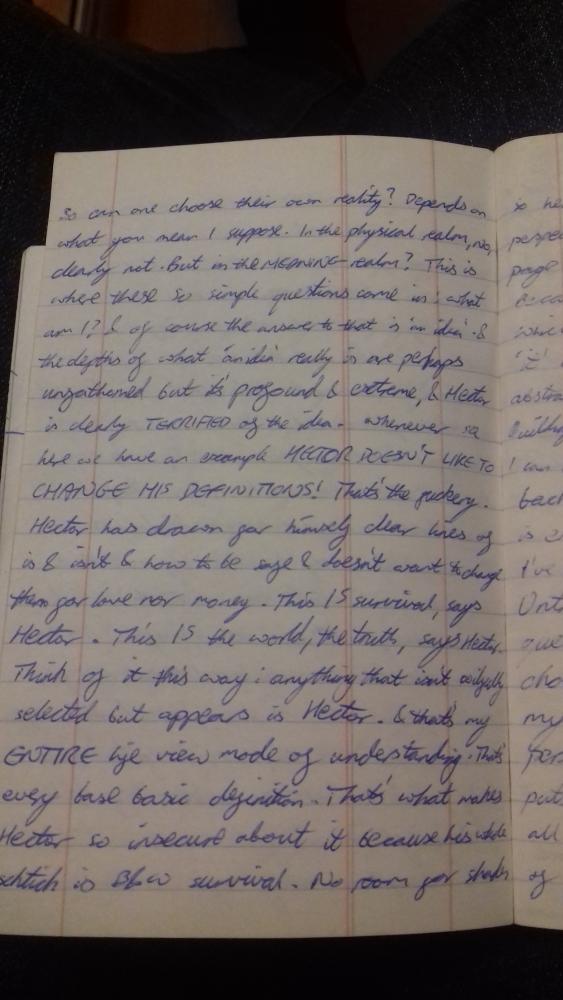 So can one choose their own reality? Depends on
what you mean I suppose. In the physical realm, no,
clearly not. But in the MEANING realm? This is
where these so simple questions come in: what
am I? & of course the answer to that is 'an idea'. &
the depths of what 'an idea' really is are perhaps
unfathomed but it's profound & extreme, & Hector
is clearly TERRIFIED of the idea. Whenever
here we have an example HECTOR DOESN'T LIKE TO
CHANGE HIS DEFINITIONS! That's the fuckery.
Hector has drawn for himself clear lines of
is & isn't & how to be safe & doesn't want to change
them for love nor money. This IS survival, says
Hector. This IS the world, the truth, says Hector.
Think of it this way: anything that isn't wilfully
selected but appears is Hector. & that's my
ENTIRE life view mode of understanding. That's
every base basic definition. That's what makes
Hector so insecure about it because his whole
schtich is B&W survival. No room for shades
so he
perspe
page
Beca
whic
'it'
abstra
build
I can
back
is e
I've
Onto
que
cho
my
per
put
all
of